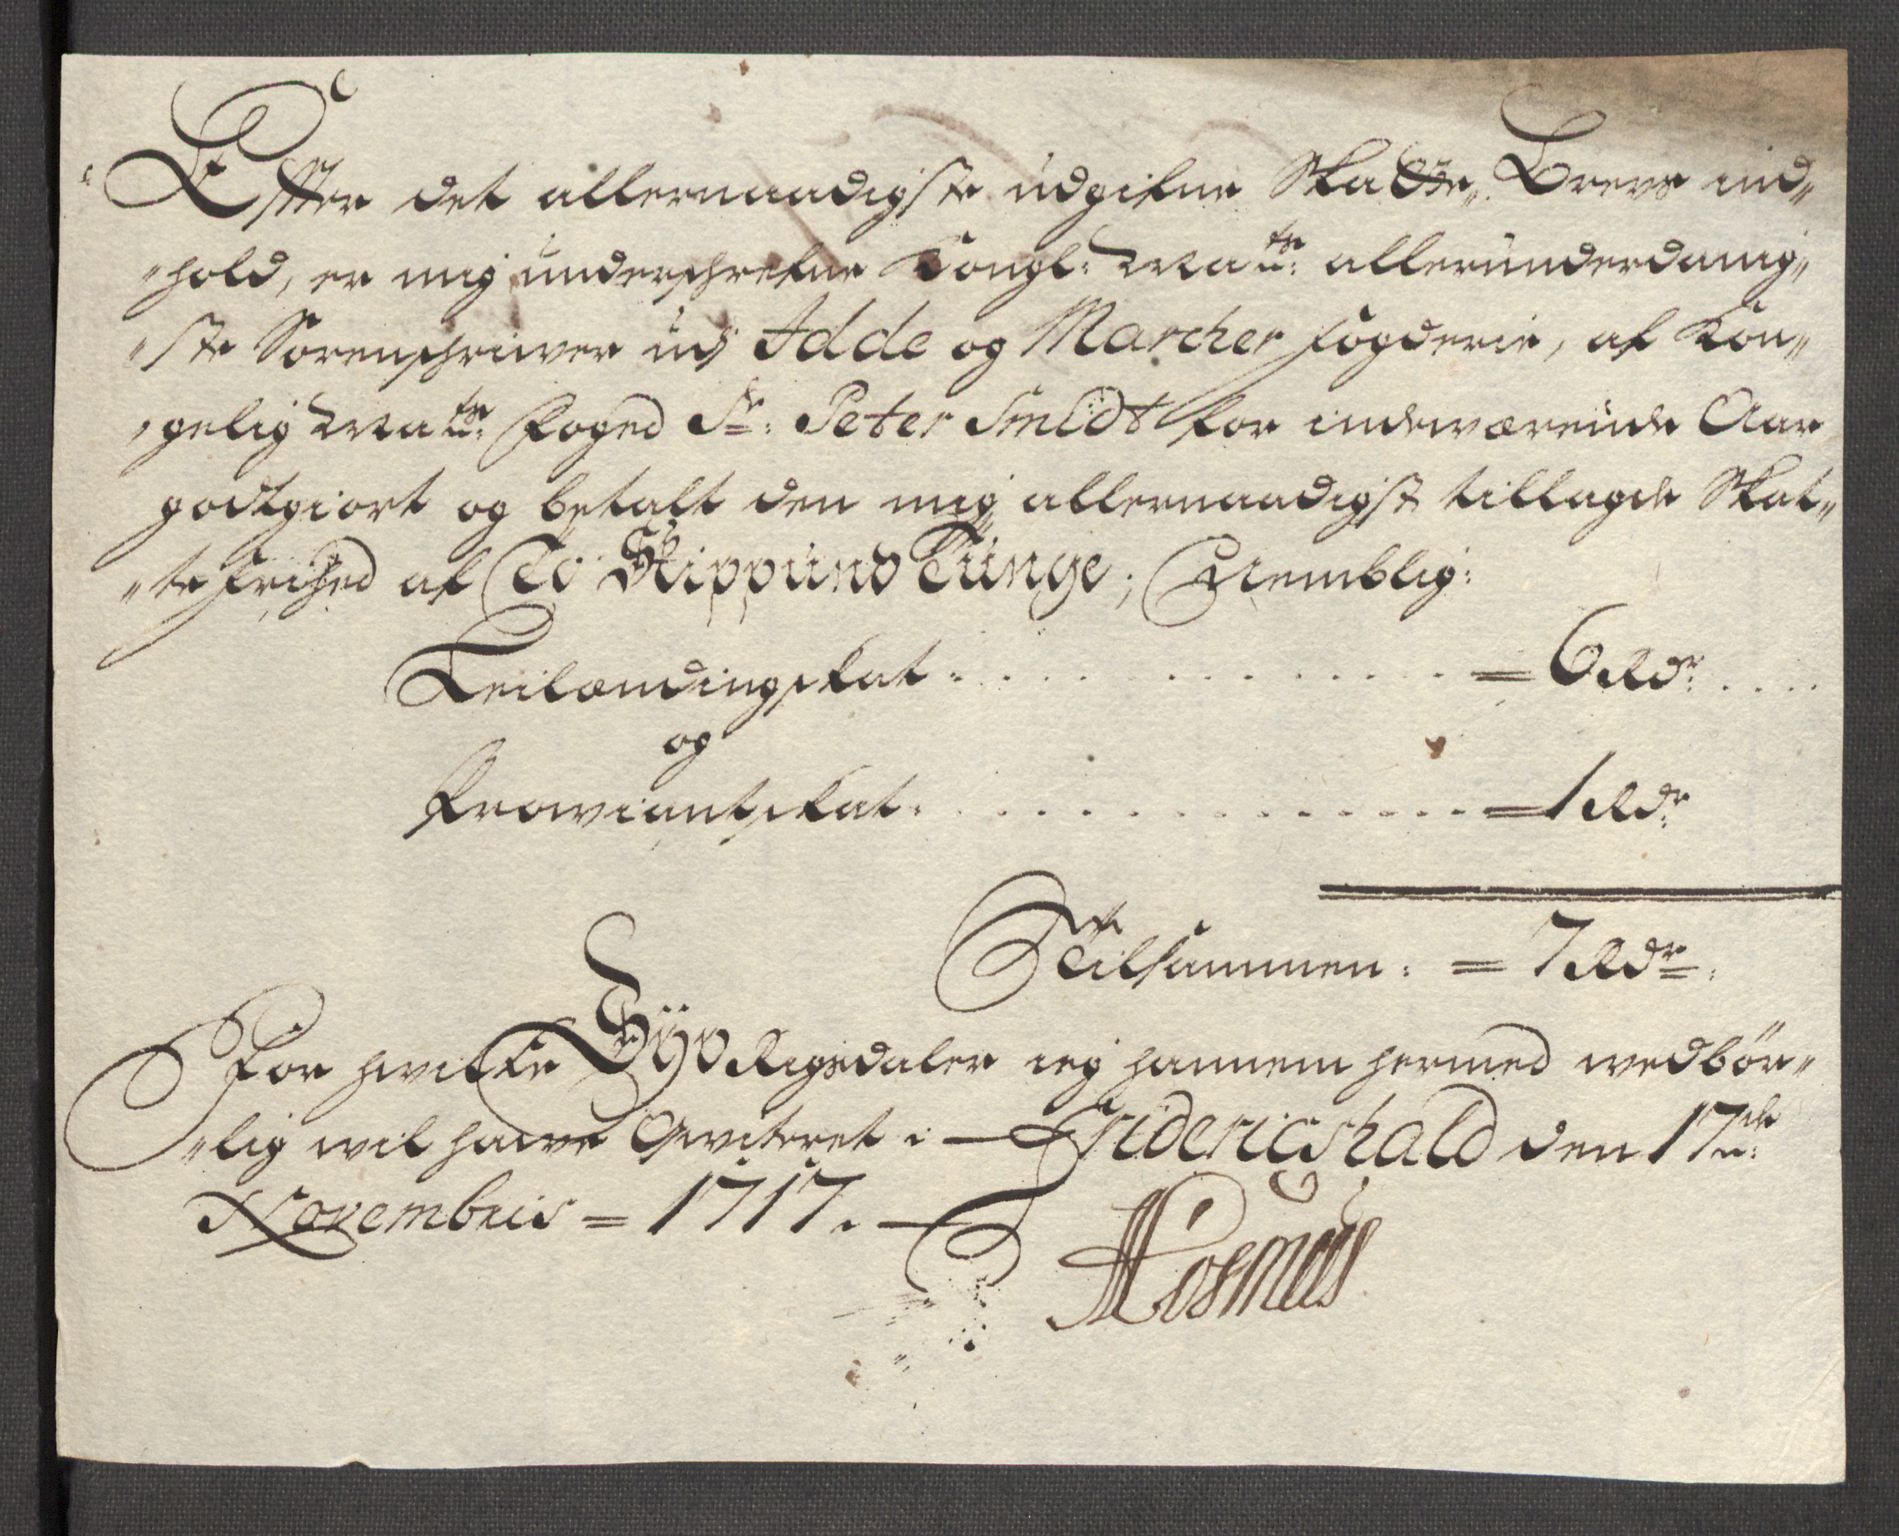 Effter det allernaadigste udgifne Skatte„ Brevs ind„
„hold, er mig underschrefne Kongl: Ma:ts allerunderdanig„
„ste Sorenschriwer udj Idde og Marcher fogderie, af Kon„
„gelig Ma:ts foged Sr: Peter Smidt for indeværende Aar
godtgiort og betalt den mig allernaadigst tillagde Skat„
„te frihed af To Skippund Tunge; Nemblig:
Leilændingskat = 6 Rdr:
og
Proviantskat: = 1 Rdr
Tilsammen: = 7 Rdr:
For hvilke Syv Rigsdaler ieg hannem hermed wedbør„
„lig wil hawe Qviteret i Fridericshald den 17de:
Novembris = 1717.